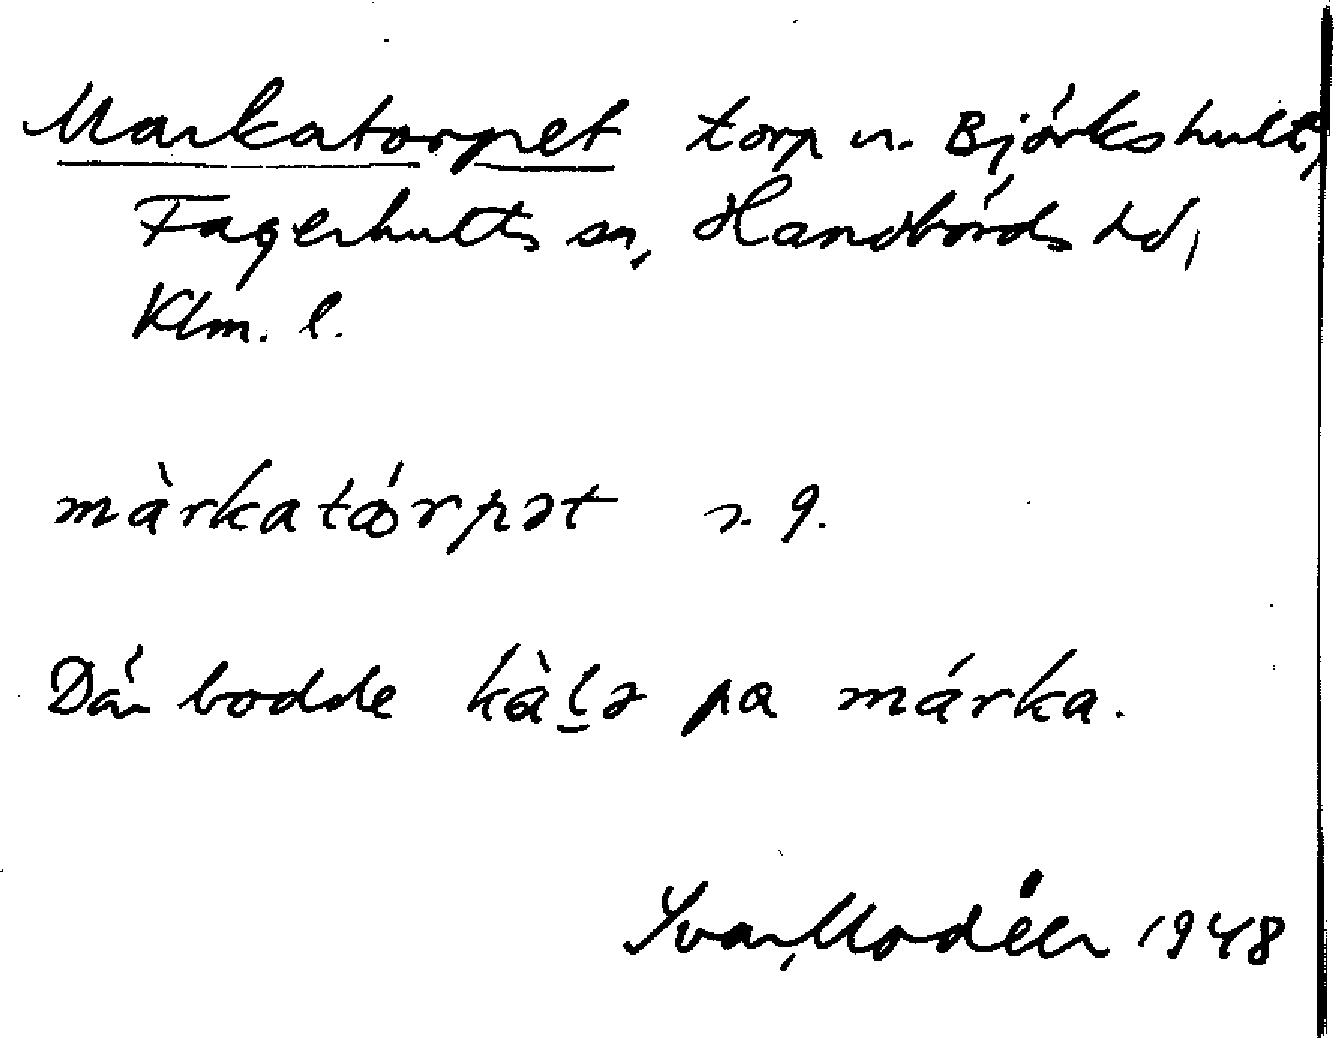 Markatorpet torp u. Björkshult,
Fagerhults sn, Handbörds hd,
Klm. l.
màrkatǻrpət s. g.
Där bodde kàlə pa márka.
Ivar Modéer 1948